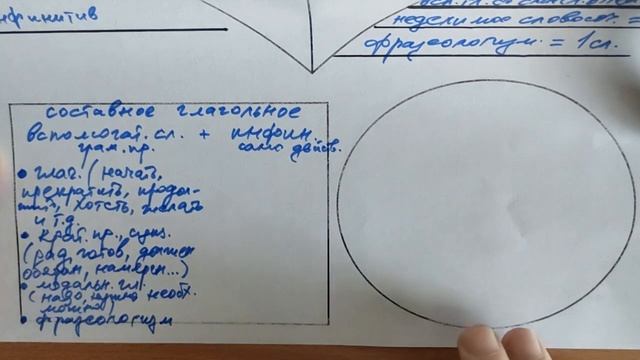 нфинитив
неделимое словосоч. =
фразеологизм. = 1 сл.
составное глагольное
вспомогат. сл. + инфин.
грам. пр. само действ.
• глаг. (начать,
прекратить, продол-
жить, хотеть, желать
и т.д.
• крат. пр., сущ.
(рад, готов, должен
обязан, намерен...)
• модальн. гл.
(надо, нужно необх.
можно)
• фразеологизм